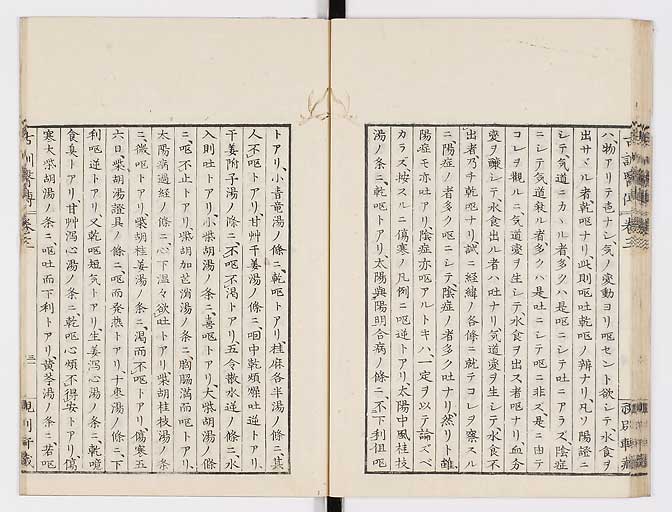 ハ、物アリテ声ナシ、気ノ変動ヨリ呕セント欲シテ、食ヲ
出サヾル者、乾呕ナリ、此則呕吐乾呕ノ辨ナリ、凡ソ陽證ニ
シテ気道ニカヽル者、多クハ是呕ニシテ吐ニアラズ、陰症
ニシテ気道発ル者、多クハ是吐ニシテ呕ニ非ズ、是ニ由テ
コレヲ觀ルニ、気道変ヲ生シテ、水食ヲ出ス者呕ナリ、血分
変ヲ醸シテ、水食出ル者ハ吐ナリ、気道変ヲ生シテ、水食不
出者乃チ乾呕ナリ、試ニ経緯ノ各條ニ就テコレヲ察スル
ニ、陽症ノ者多ク呕ニシテ、陰症ノ者多ク吐ナリ、然リト雖、
陽症モ亦吐アリ、陰症亦呕アルトキハ、一定ヲ以テ論ズベ
カラズ、按スルニ傷寒ノ凡例ニ呕逆トアリ、太陽中風桂枝
湯ノ条ニ、乾呕トアリ、太陽與陽明合病ノ條ニ、不下利但呕
トアリ、小青竜湯ノ條ニ、乾呕トアリ、桂麻各半湯ノ條ニ、其
人不呕トアリ、甘艸干姜湯ノ條ニ、咽中乾煩燥吐逆トアリ、
干姜附子湯ノ條ニ、不呕不渇トアリ、五令散水逆ノ條ニ、水
入則吐トアリ、小柴胡湯ノ条ニ、喜呕トアリ、大柴胡湯ノ條
ニ、呕不止トアリ、柴胡加芒硝湯ノ条ニ、胸脇満而呕トアリ、
太陽病過経ノ條ニ、心下温々欲吐トアリ、柴胡桂枝湯ノ条
ニ、微呕トアリ、柴胡桂姜湯ノ条ニ、渇而不呕トアリ、傷寒五
六日、柴胡湯證具ノ條ニ、呕而発熱トアリ、十枣湯ノ條ニ、下
利呕逆トアリ、又乾呕短気トアリ、生姜瀉心湯ノ条ニ、乾噫
食臭トアリ、甘艸瀉心湯ノ条ニ、乾呕心煩不得安トアリ、傷
寒大柴胡湯ノ条ニ、呕吐而下利トアリ、黄芩湯ノ条ニ、若呕
古訓醫傳 卷三
三